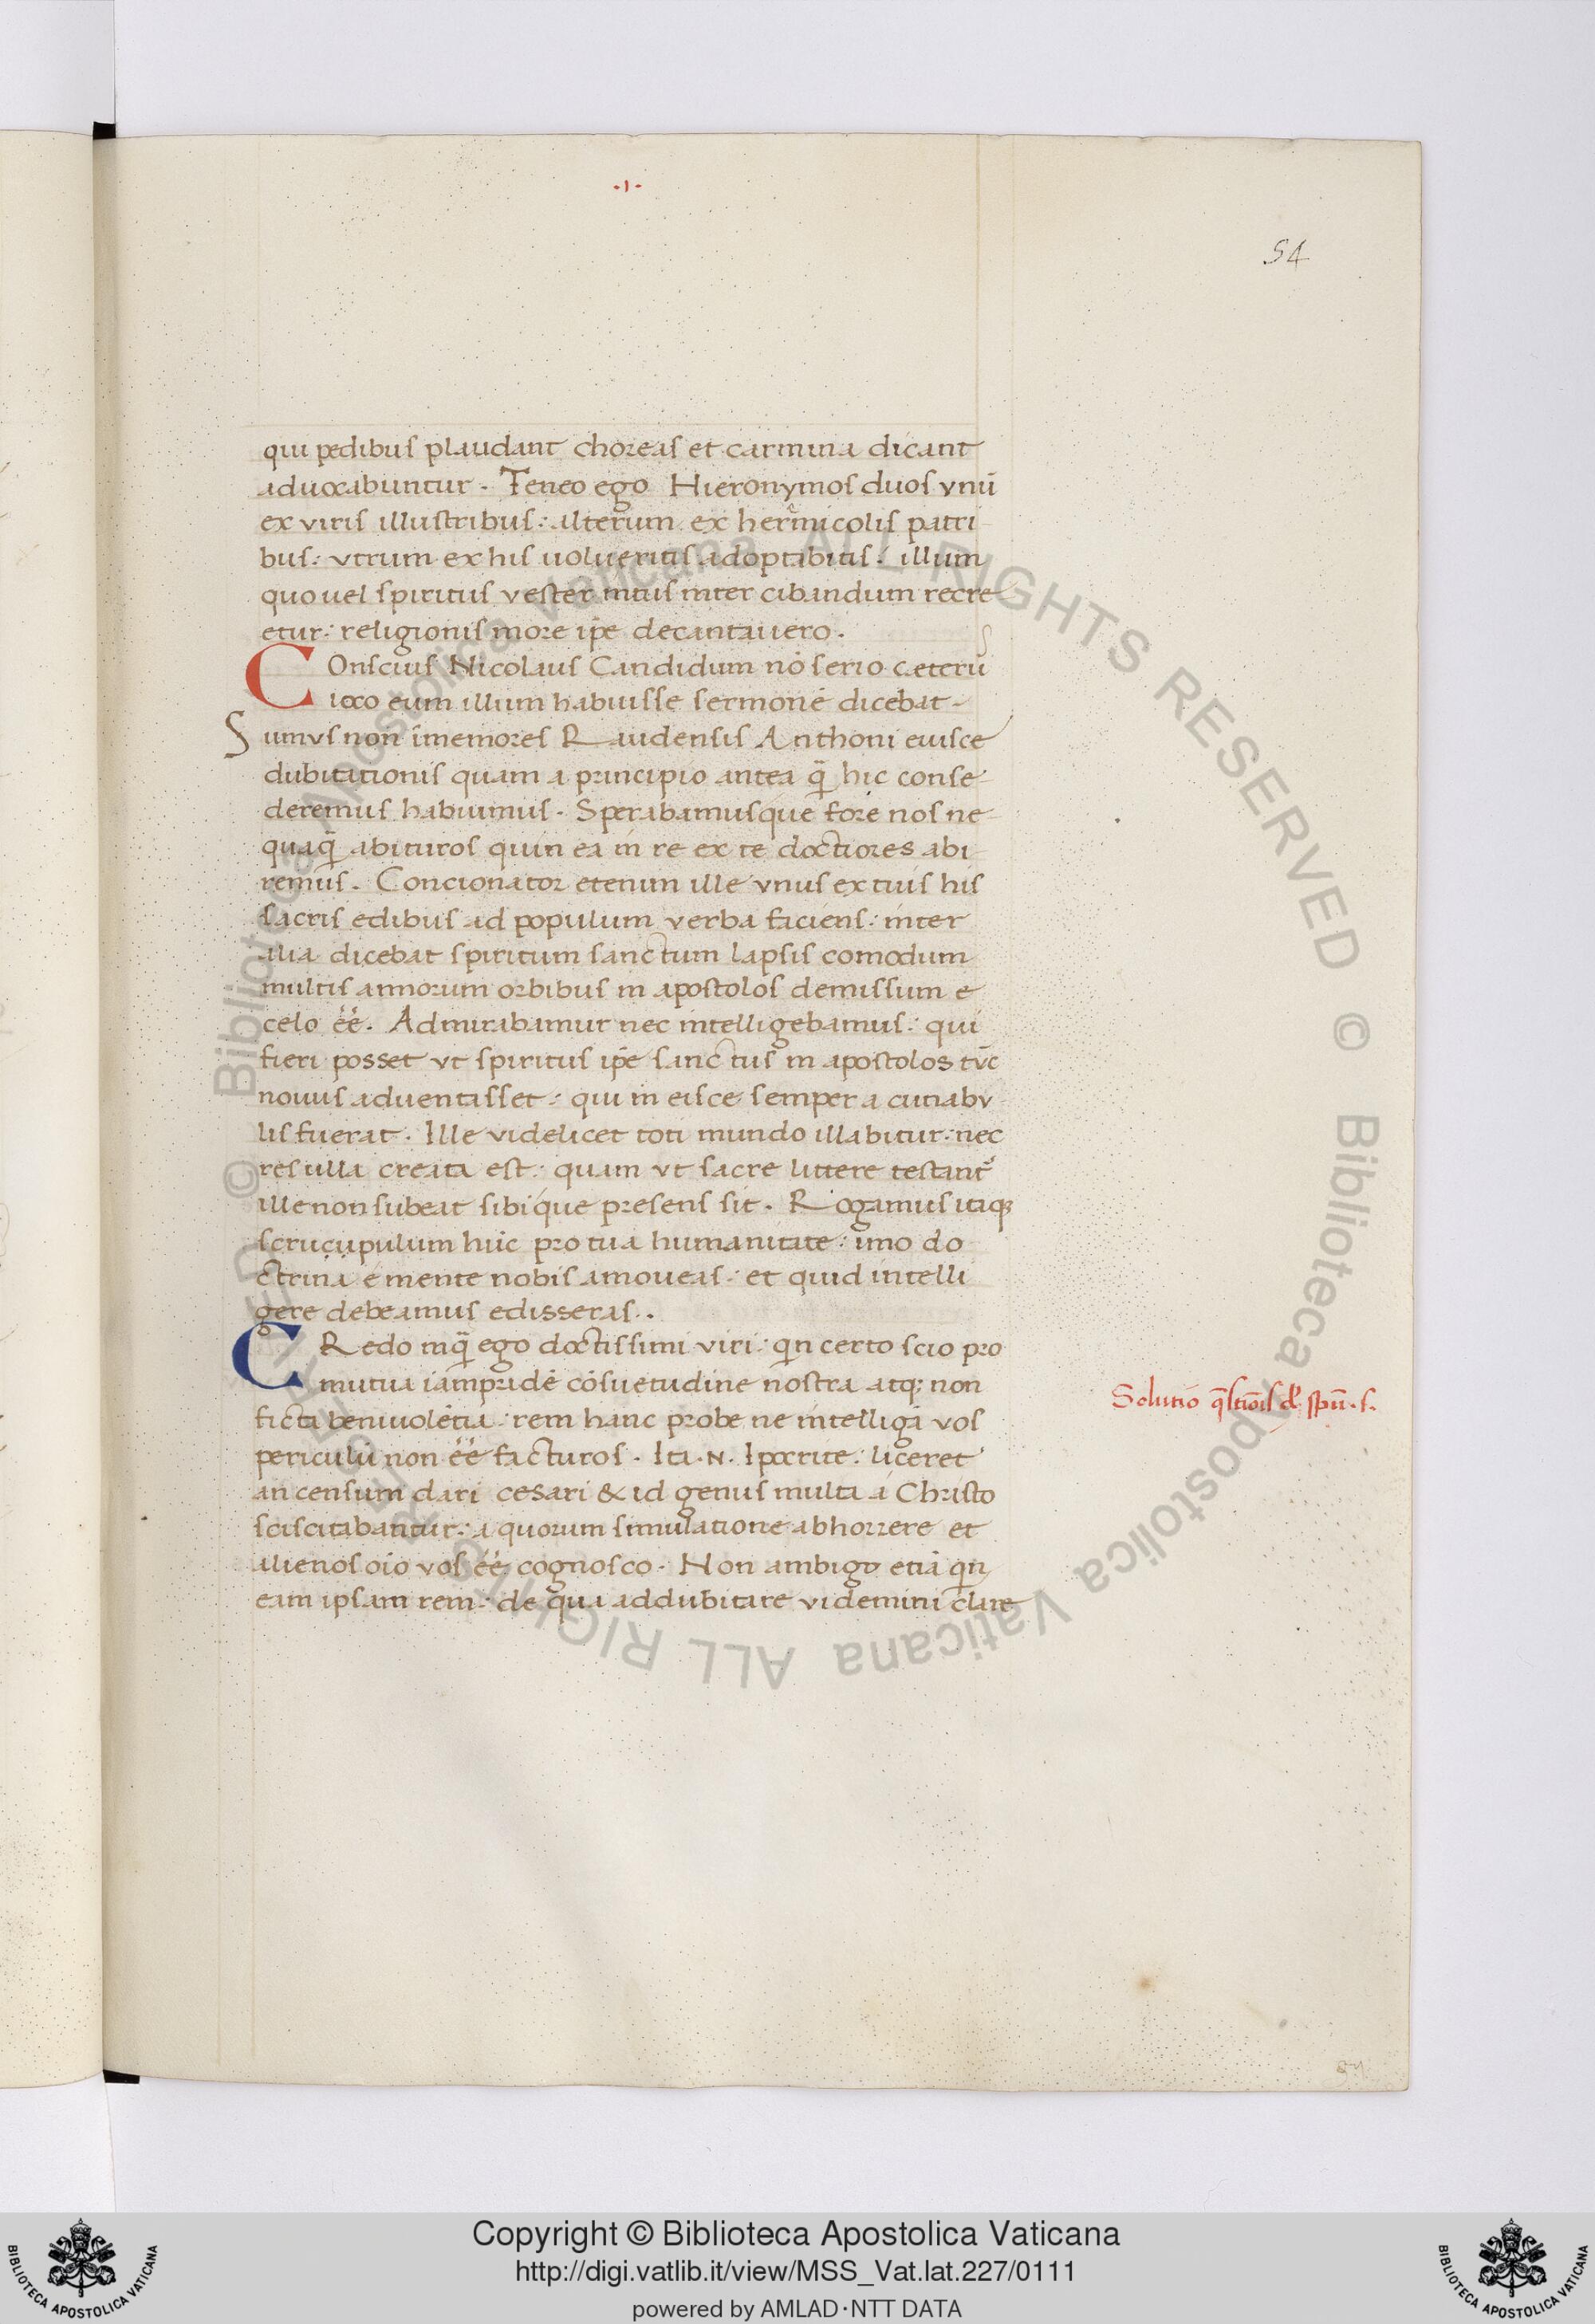 ·1·
54
qui pedibus plaudant choreas et carmina dicant
aduocabuntur. Teneo ego Hieronymos duos vnū
ex viris illustribus: alterum ex her̄micolis patri
bus: vtrum ex his uolueritis adoptabitis: illum
quo uel spiritus vester intus inter cibandum recre
etur: religionis more ip̄e decantauero.
COnscius Nicolaus Candidum nō serio ceterū
ioco eum illum habuisse sermonē dicebat.
Sumvs non īmemores Raudensis Anthoni euisce
dubitationis quam a principio antea q̄ hic conse
deremus habuimus. Sperabamusque fore nos ne
quaq̄ abituros quin ea in re ex te doctiores abi
remus. Concionator etenim ille vnus ex tuis his
sacris edibus ad populum verba faciens: inter
alia dicebat spiritum sanctum lapsis comodum
multis annorum orbibus in apostolos demissum e
celo ēē. Admirabamur nec intelligebamus: qui
fieri posset vt spiritus ip̄e sanctus in apostolos tv̄c
nouus aduentasset: qui in eisce semper a cunabv
lis fuerat. Ille videlicet toti mundo illabitur: nec
res ulla creata est: quam vt sacre littere testant᷑
ille non subeat sibique presens sit. Rogamus itaqꝫ
scrucupulum hūc pro tua humanitate: imo do
ctrina e mente nobis amoueas: et quid intelli
gere debeamus edisseras..
CRedo inq̄ ego doctissimi viri: qn̄ certo scio pro
mutua iampridē cōsuetudine nostra atqꝫ non
ficta beniuolētia: rem hanc probe ne intelligā vos
periculū non ēē facturos. Ita .N. Ipocrite: liceret
an censum dari cesari & id genus multa á Christo
sciscitabantur: a quorum simulatione abhorrere et
alienos oīo vos ēē cognosco. Non ambigo etiā qn̄
eam ipsam rem: de qua addubitare videmini clare
Solutio q̄stiōis d̄ spū. s.
54
© Biblioteca Apostolica Vaticana ALL RIGHTS RESERVED © Biblioteca Apostolica Vaticana ALL RIGHTS RESERVED
Copyright © Biblioteca Apostolica Vaticana
http://digi.vatlib.it/view/MSS_Vat.lat.227/0111
powered by AMLAD·NTT DATA
BIBLIOTECA APOSTOLICA VATICANA
BIBLIOTECA APOSTOLICA VATICANA